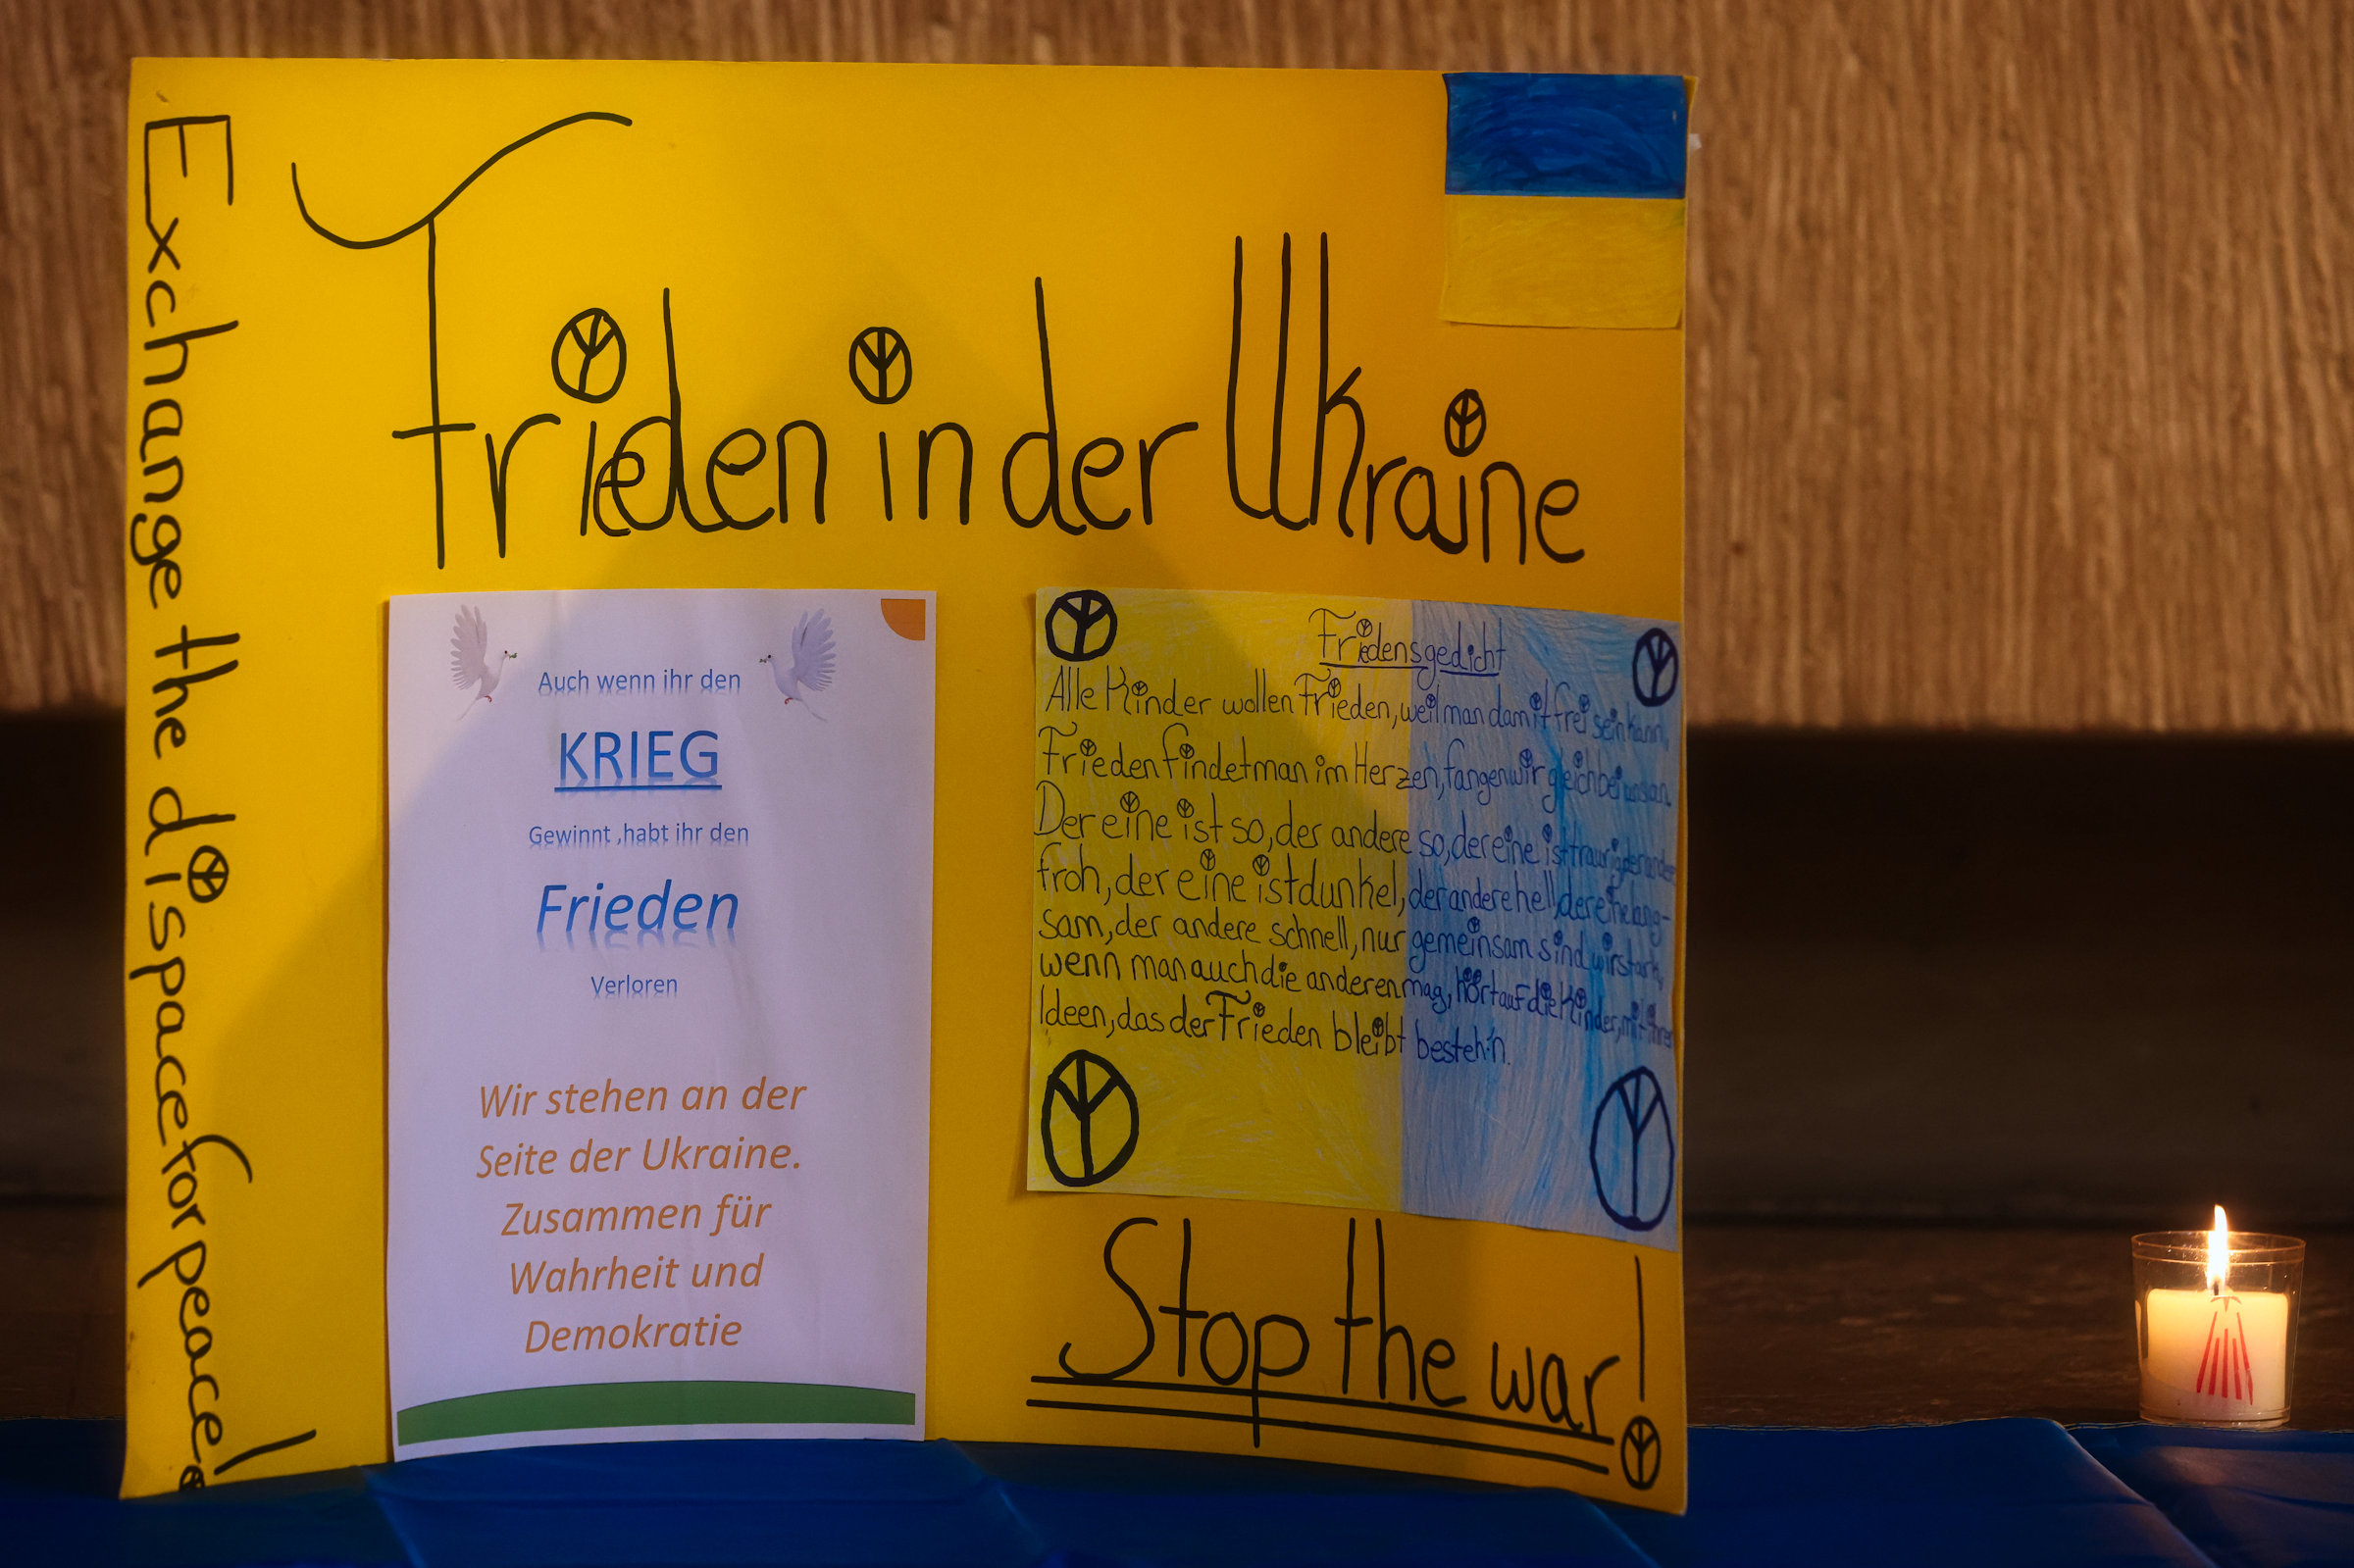 Exchange the dispace for peace!
Frieden in der Ukraine
Auch wenn ihr den
KRIEG
Gewinnt ,habt ihr den
Frieden
Verloren
Wir stehen an der
Seite der Ukraine.
Zusammen für
Wahrheit und
Demokratie
Friedensgedicht
Alle Kinder wollen Frieden, weil man damit frei sein kann,
Frieden findet man im Herzen, fangen wir gleich bei uns an.
Der eine ist so, der andere so, der eine ist traurig, der andere
froh, der eine ist dunkel, der andere hell, der eine lang-
sam, der andere schnell, nur gemeinsam sind wir stark,
wenn man auch die anderen mag, hört auf die Kinder, mit ihren
Ideen, das der Frieden bleibt besteh'n.
Stop the war!